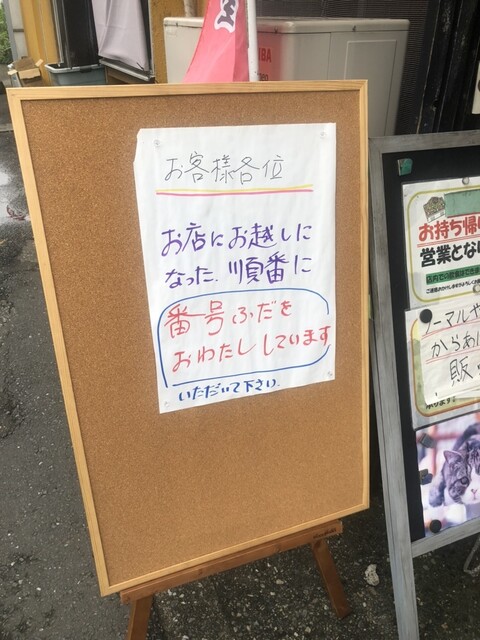 お客様各位
お店にお越しに
なった、順番に
番号ふだを
おわたししています
いただいて下さい。
お持ち帰り
営業とな
店内で
ノーマルや
からあ
販